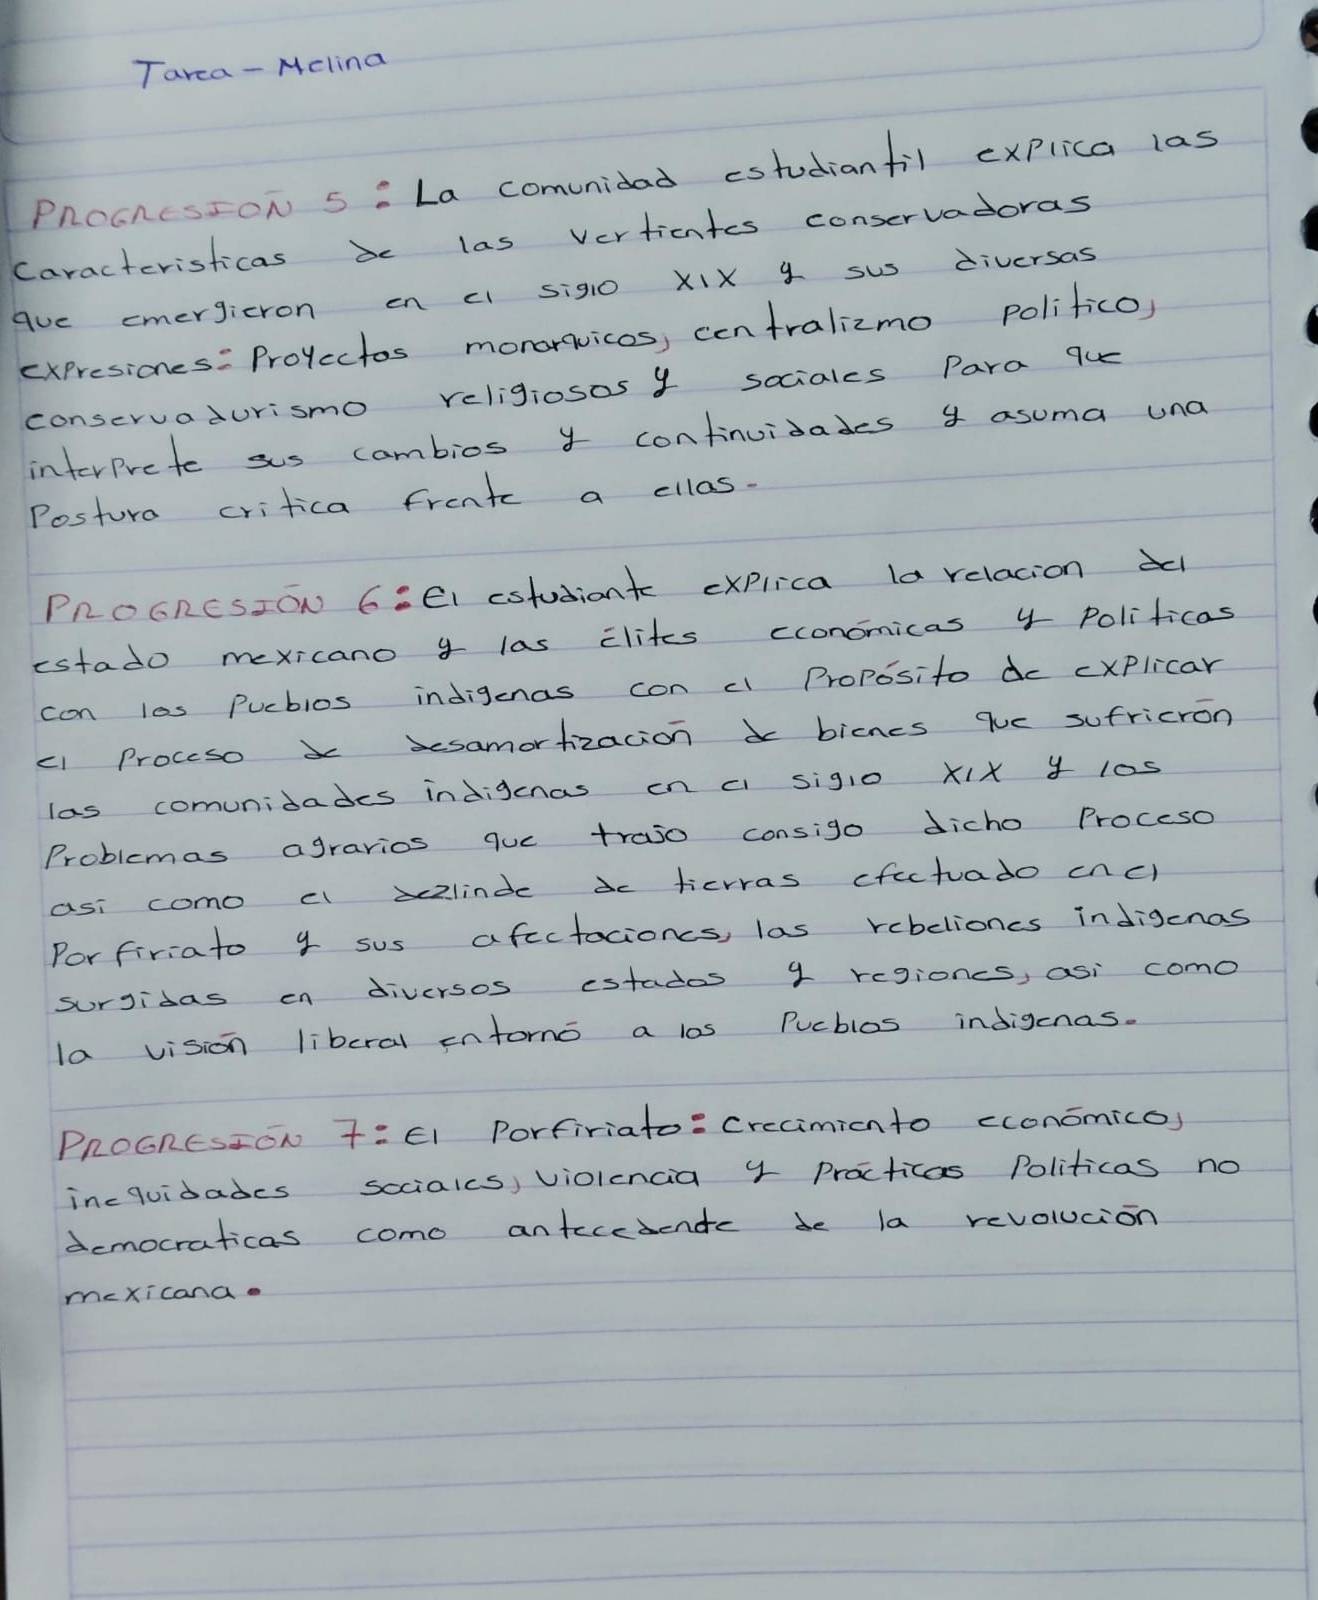 Tarea - Melina
PROGRESIÓN 5: La comunidad estudiantil explica las
caracteristicas de las vertientes conservadoras
que emergieron en el siglo XIX y sus diversas
expresiones: Proyectos monarquicos, centralizmo politico,
conservadurismo religiosos y sociales para que
interprete sus cambios y continuidades y asuma una
Postura critica frente a ellas.
PROGRESIÓN 6: El estudiante explica la relacion del
estado mexicano y las élites económicas y politicas
con los pueblos indigenas con el propósito de explicar
el proceso de desamortización de bienes que sufrierón
las comunidades indigenas en el siglo XIX y los
Problemas agrarios que trajo consigo dicho proceso
asi como el dezlinde de tierras efectuado en el
Porfiriato y sus afectaciones, las rebeliones indigenas
surgidas en diversos estados y regiones, asi como
la visión liberal entornó a los Pueblos indigenas.
PROGRESIÓN 7: El Porfiriato: Crecimiento económico,
inequidades sociales, violencia y prácticas Politicas no
democraticas como antecedente de la revolución
mexicana.